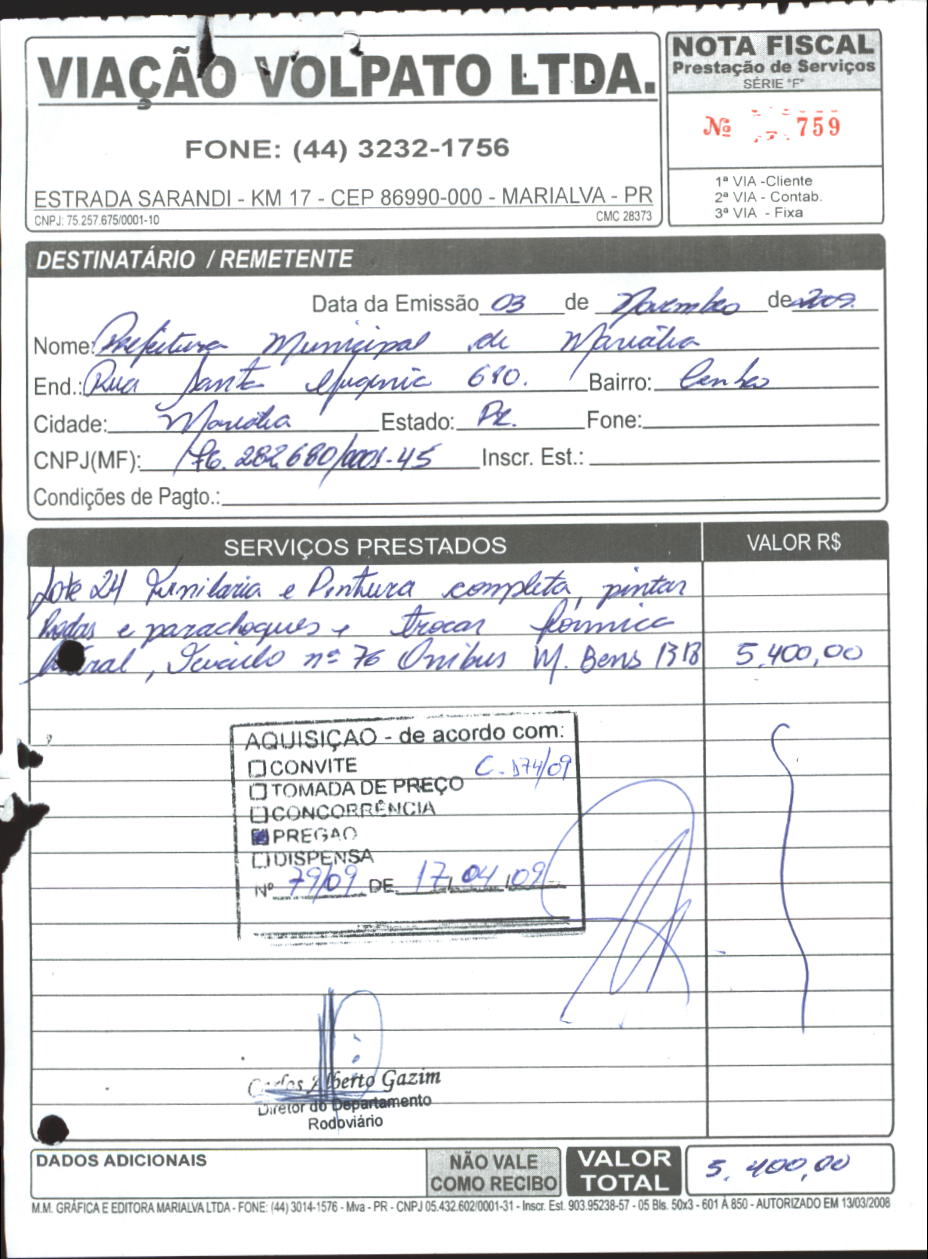 VIAÇÃO VOLPATO LTDA.
FONE: (44) 3232-1756
ESTRADA SARANDI - KM 17 - CEP 86990-000 - MARIALVA - PR
CNPJ: 75.257.675/0001-10 CMC 28373
NOTA FISCAL
Prestação de Serviços
SÉRIE "F"
Nº 759
1ª VIA -Cliente
2ª VIA - Contab.
3ª VIA - Fixa
DESTINATÁRIO / REMETENTE
Data da Emissão 03 de Novembro de 2009.
Nome: Prefeitura Municipal de Marialva
End.: Rua Santa Efigenia 680. Bairro: Centro
Cidade: Marialva Estado: Pr. Fone:
CNPJ(MF): 76.282.680/0001-45 Inscr. Est.:
Condições de Pagto.:
SERVIÇOS PRESTADOS VALOR R$
Lote 24 Funilaria e Pintura completa, pintar
Rodas e parachoques e trocar fórmica
lateral, Veiculo nº 76 Onibus M. Bens 1318 5.400,00
AQUISIÇÃO - de acordo com:
CONVITE C. 174/09
TOMADA DE PREÇO
CONCORRÊNCIA
PREGÃO
DISPENSA
Nº 79/09 DE 17/04/09
Carlos Alberto Gazim
Diretor do Departamento
Rodoviário
DADOS ADICIONAIS
NÃO VALE
COMO RECIBO
VALOR
TOTAL
5.400,00
M.M. GRÁFICA E EDITORA MARIALVA LTDA - FONE: (44) 3014-1576 - Mva - PR - CNPJ 05.432.602/0001-31 - Inscr. Est. 903.95238-57 - 05 Bls. 50x3 - 601 À 850 - AUTORIZADO EM 13/03/2008